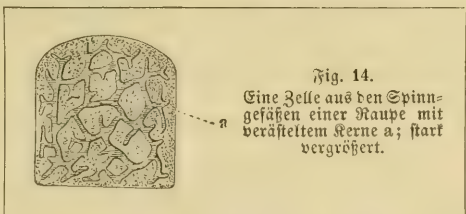 Fig. 14.
Eine Zelle aus den Spinn=
gefäßen einer Raupe mit
veräſteltem Kerne a; ſtark
vergrößert.
a